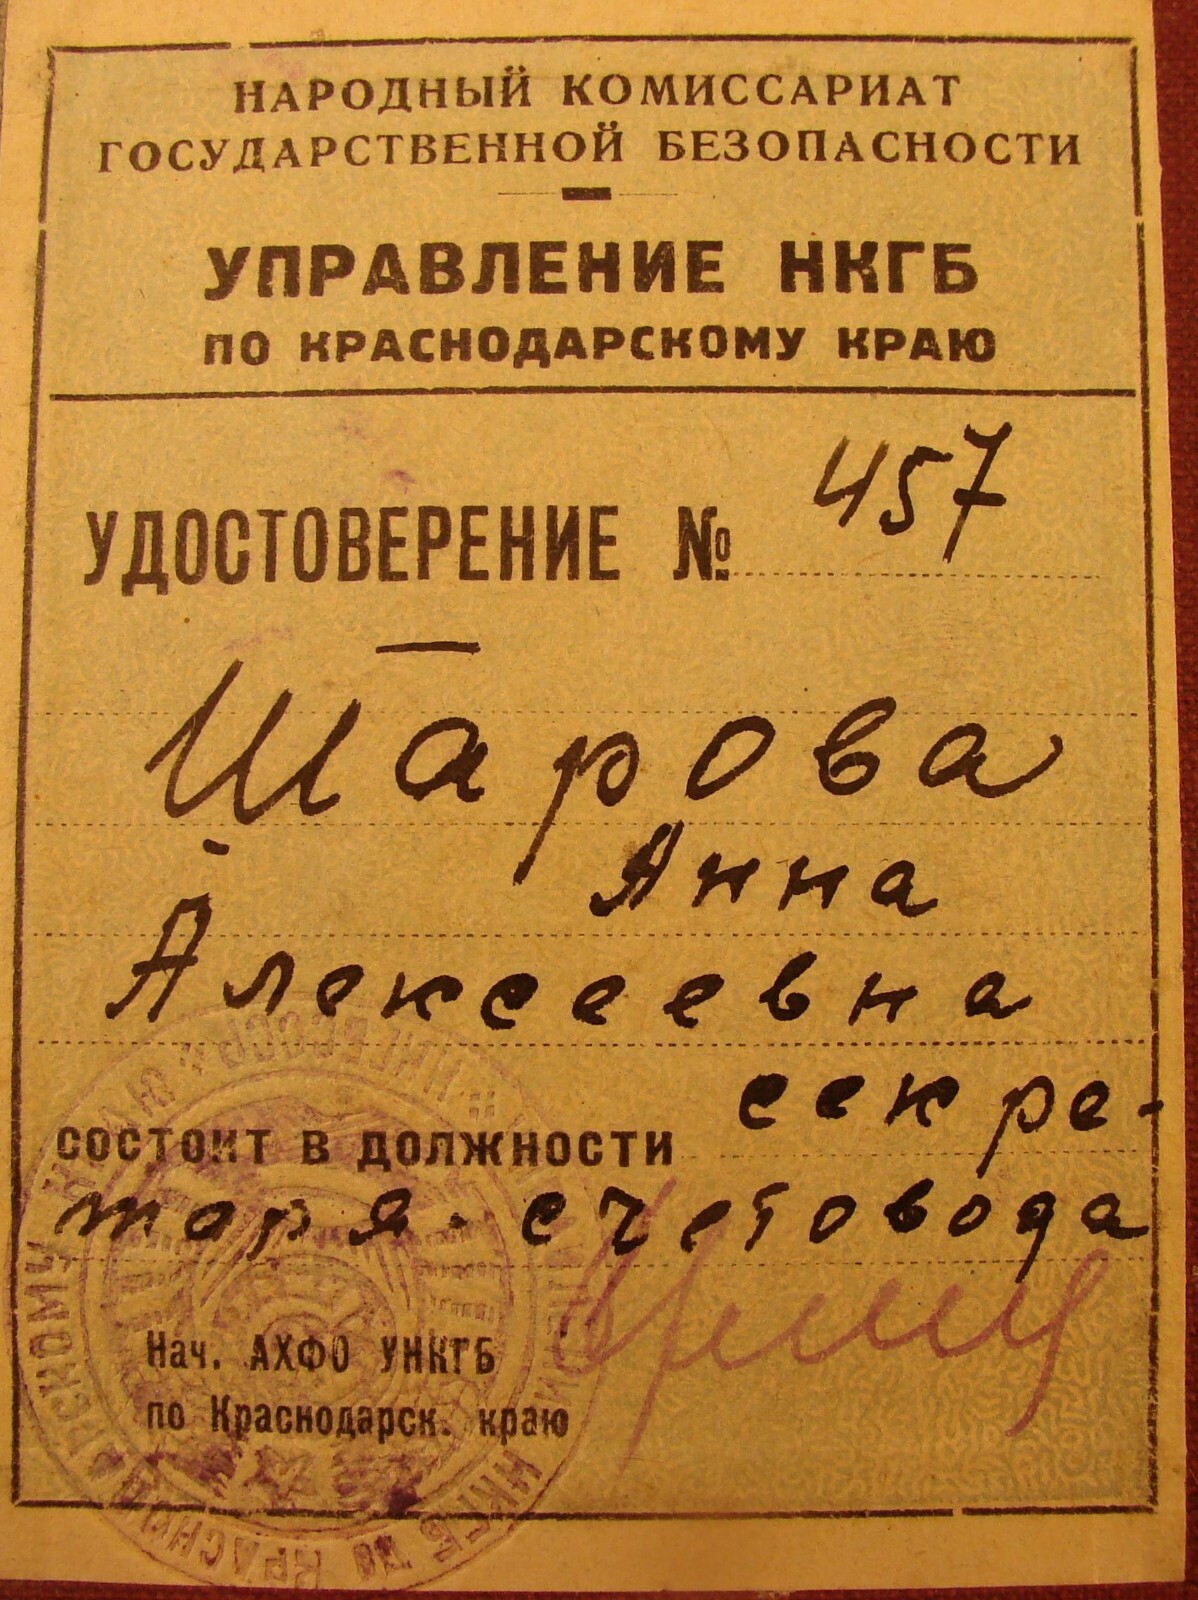 НАРОДНЫЙ КОМИССАРИАТ
ГОСУДАРСТВЕННОЙ БЕЗОПАСНОСТИ
УПРАВЛЕНИЕ НКГБ
ПО КРАСНОДАРСКОМУ КРАЮ
УДОСТОВЕРЕНИЕ № 457
Шарова
Анна
Алексеевна
СОСТОИТ В ДОЛЖНОСТИ секре-
таря-счетовода
Нач. АХФО УНКГБ
по Краснодарск. краю
НКГБ ПО КРАСНОДАРСКОМУ КРАЮ